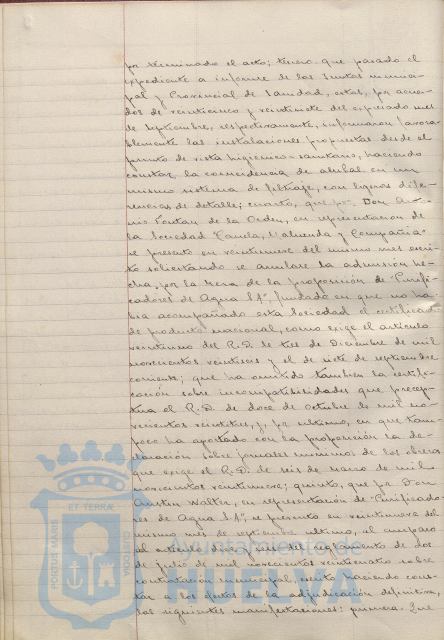 por terminado el acto; tercero que pasado el
expediente a informe de las Juntas munici-
pal y Provincial de Sanidad, estas, por acuer-
dos de veinticinco y veintisiete del expresado mes
de septiembre, respectivamente, informaron favora-
blemente las instalaciones propuestas desde el
punto de vista higienico-sanitario, haciendo
constar la coincidencia de ambas en un
mismo sistema de filtraje, con ligeras dife-
rencias de detalles; cuarto, que por Don
de la Orden, en representacion de
la Sociedad "Canela, Valmenda y Compañia"
se presento en veintinueve del mismo mes escri-
to solicitando se anulare la admisión he-
cha por la Mesa de la proposición de "Purifi-
cadores de Agua SA", fundado en que no ha-
bia acompañado esta Sociedad el certificado
de productor nacional, como exige el articulo
veintiuno del R.D. de tres de Diciembre de mil
novecientos veintiseis y el de siete de septiembre
corriente; que ha omitido tambien la certifi-
cación sobre incompatibilidades que precep-
tua el R.D. de doce de Octubre de mil no-
vecientos veintitres, y, por ultimo, en que tam-
poco ha aportado con la proposición la de-
claración sobre jornales minimos de los obreros
que exige el R.D. de seis de Marzo de mil
novecientos veintinueve; quinto, que por Don
Austin Walter, en representación de "Purificado-
res de Agua SA", se presento en veintinueve del
mismo mes de septiembre ultimo, al amparo
del articulo del reglamento de dos
de julio de mil novecientos veinticuatro sobre
contratación municipal, escrito haciendo cons-
tar a los efectos de la adjudicación definitiva,
las siguientes manifestaciones: primera. Que
PORTUS MARIS
ET TERRAE
CUSTODIA
Ayuntamiento de
HUELVA